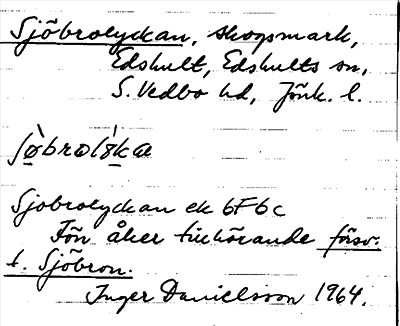 Sjöbrolyckan, skogsmark,
Edshult, Edshults sn,
S. Vedbo hd, Jönk. l.
Sjobrolyckan ek 6F6c
Förr åker tillhörande försv.
t. Sjöbron.
Inger Danielsson 1964.